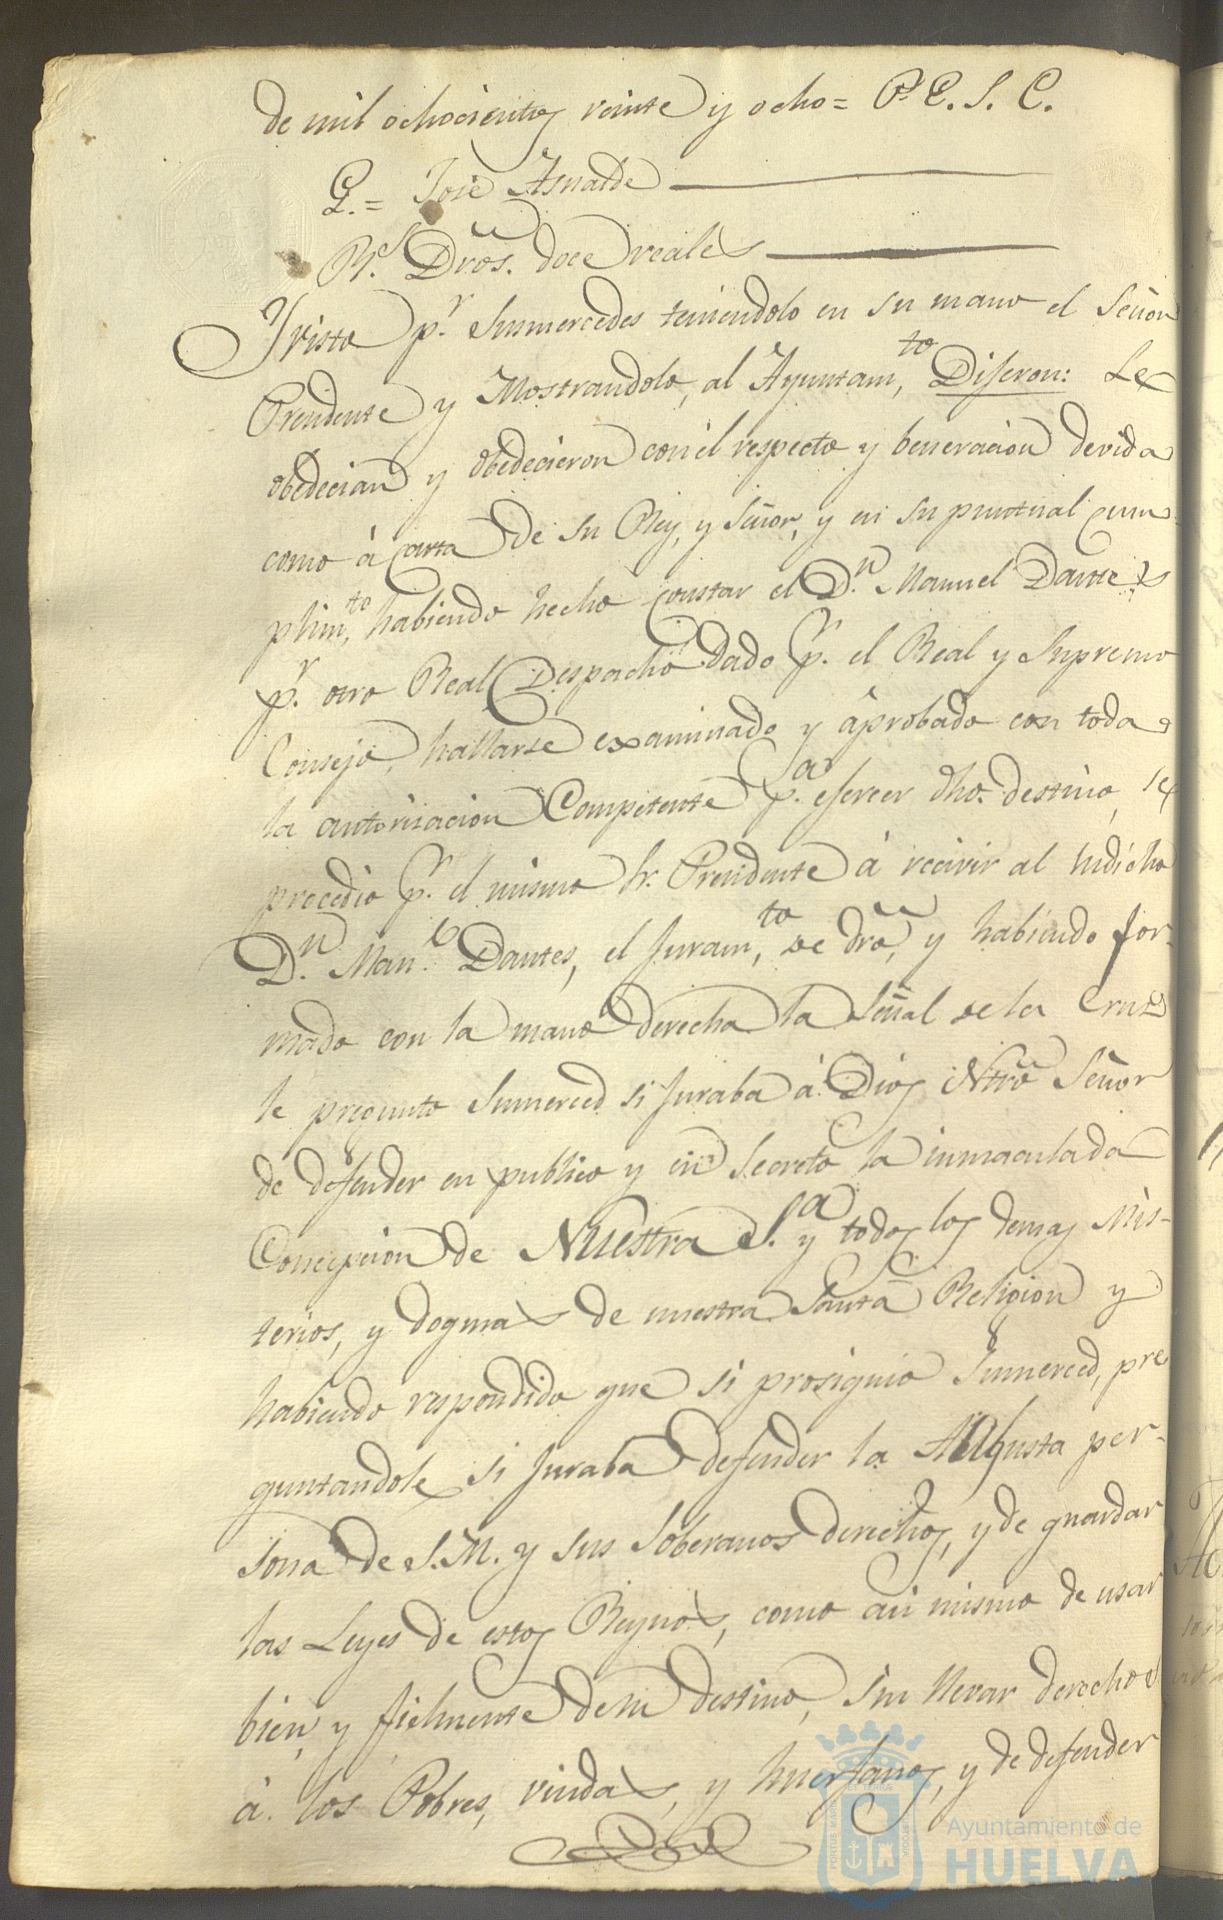 de mil ochocientos veinte y ocho = P. E. S. C.
G. = José Asnalde
Rs. Dros. doce reales
Y visto pr. Susmercedes teniendolo en su mano el Señor
Presidente y Mostrandolo, al Ayuntamto, Digeron: Le
obedecian y obedecieron con el respecto y beneracion devida
como á Carta de su Rey, y Señor, y en su puntual cum-
plimto, habiendo hecho constar el Dn. Manuel Dantes
pr. otro Real Despacho dado pr. el Real y Supremo
Consejo, hallarse examinado y aprobado con toda
la autorizacion Competente pa. ejercer dho. destino, se
procedio pr. el mismo Sr. Presidente á recivir al sudicho
Dn. Manl. Dantes, el Juramto, de dro, y habiendo for-
mado con la mano derecha la Señal de la Cruz
le pregunto Sumerced si Juraba á Dios Ntro Señor
de defender en publico y en Secreto la inmaculada
Concepcion de Nuestra Sa. y todos los demas Mis-
terios, y dogmas de nuestra Santa Religion y
habiendo respondido que si prosiguio Sumerced, pre
guntandole si Juraba defender la Augusta per-
sona de S.M. y sus Soberanos derechos, y de guardar
las Leyes de estos Reynos, como asi mismo de usar
bien, y fielmente de su destino, sin llevar derechos
á los Pobres, viudas, y huerfanos, y de defender
Ayuntamiento de
HUELVA